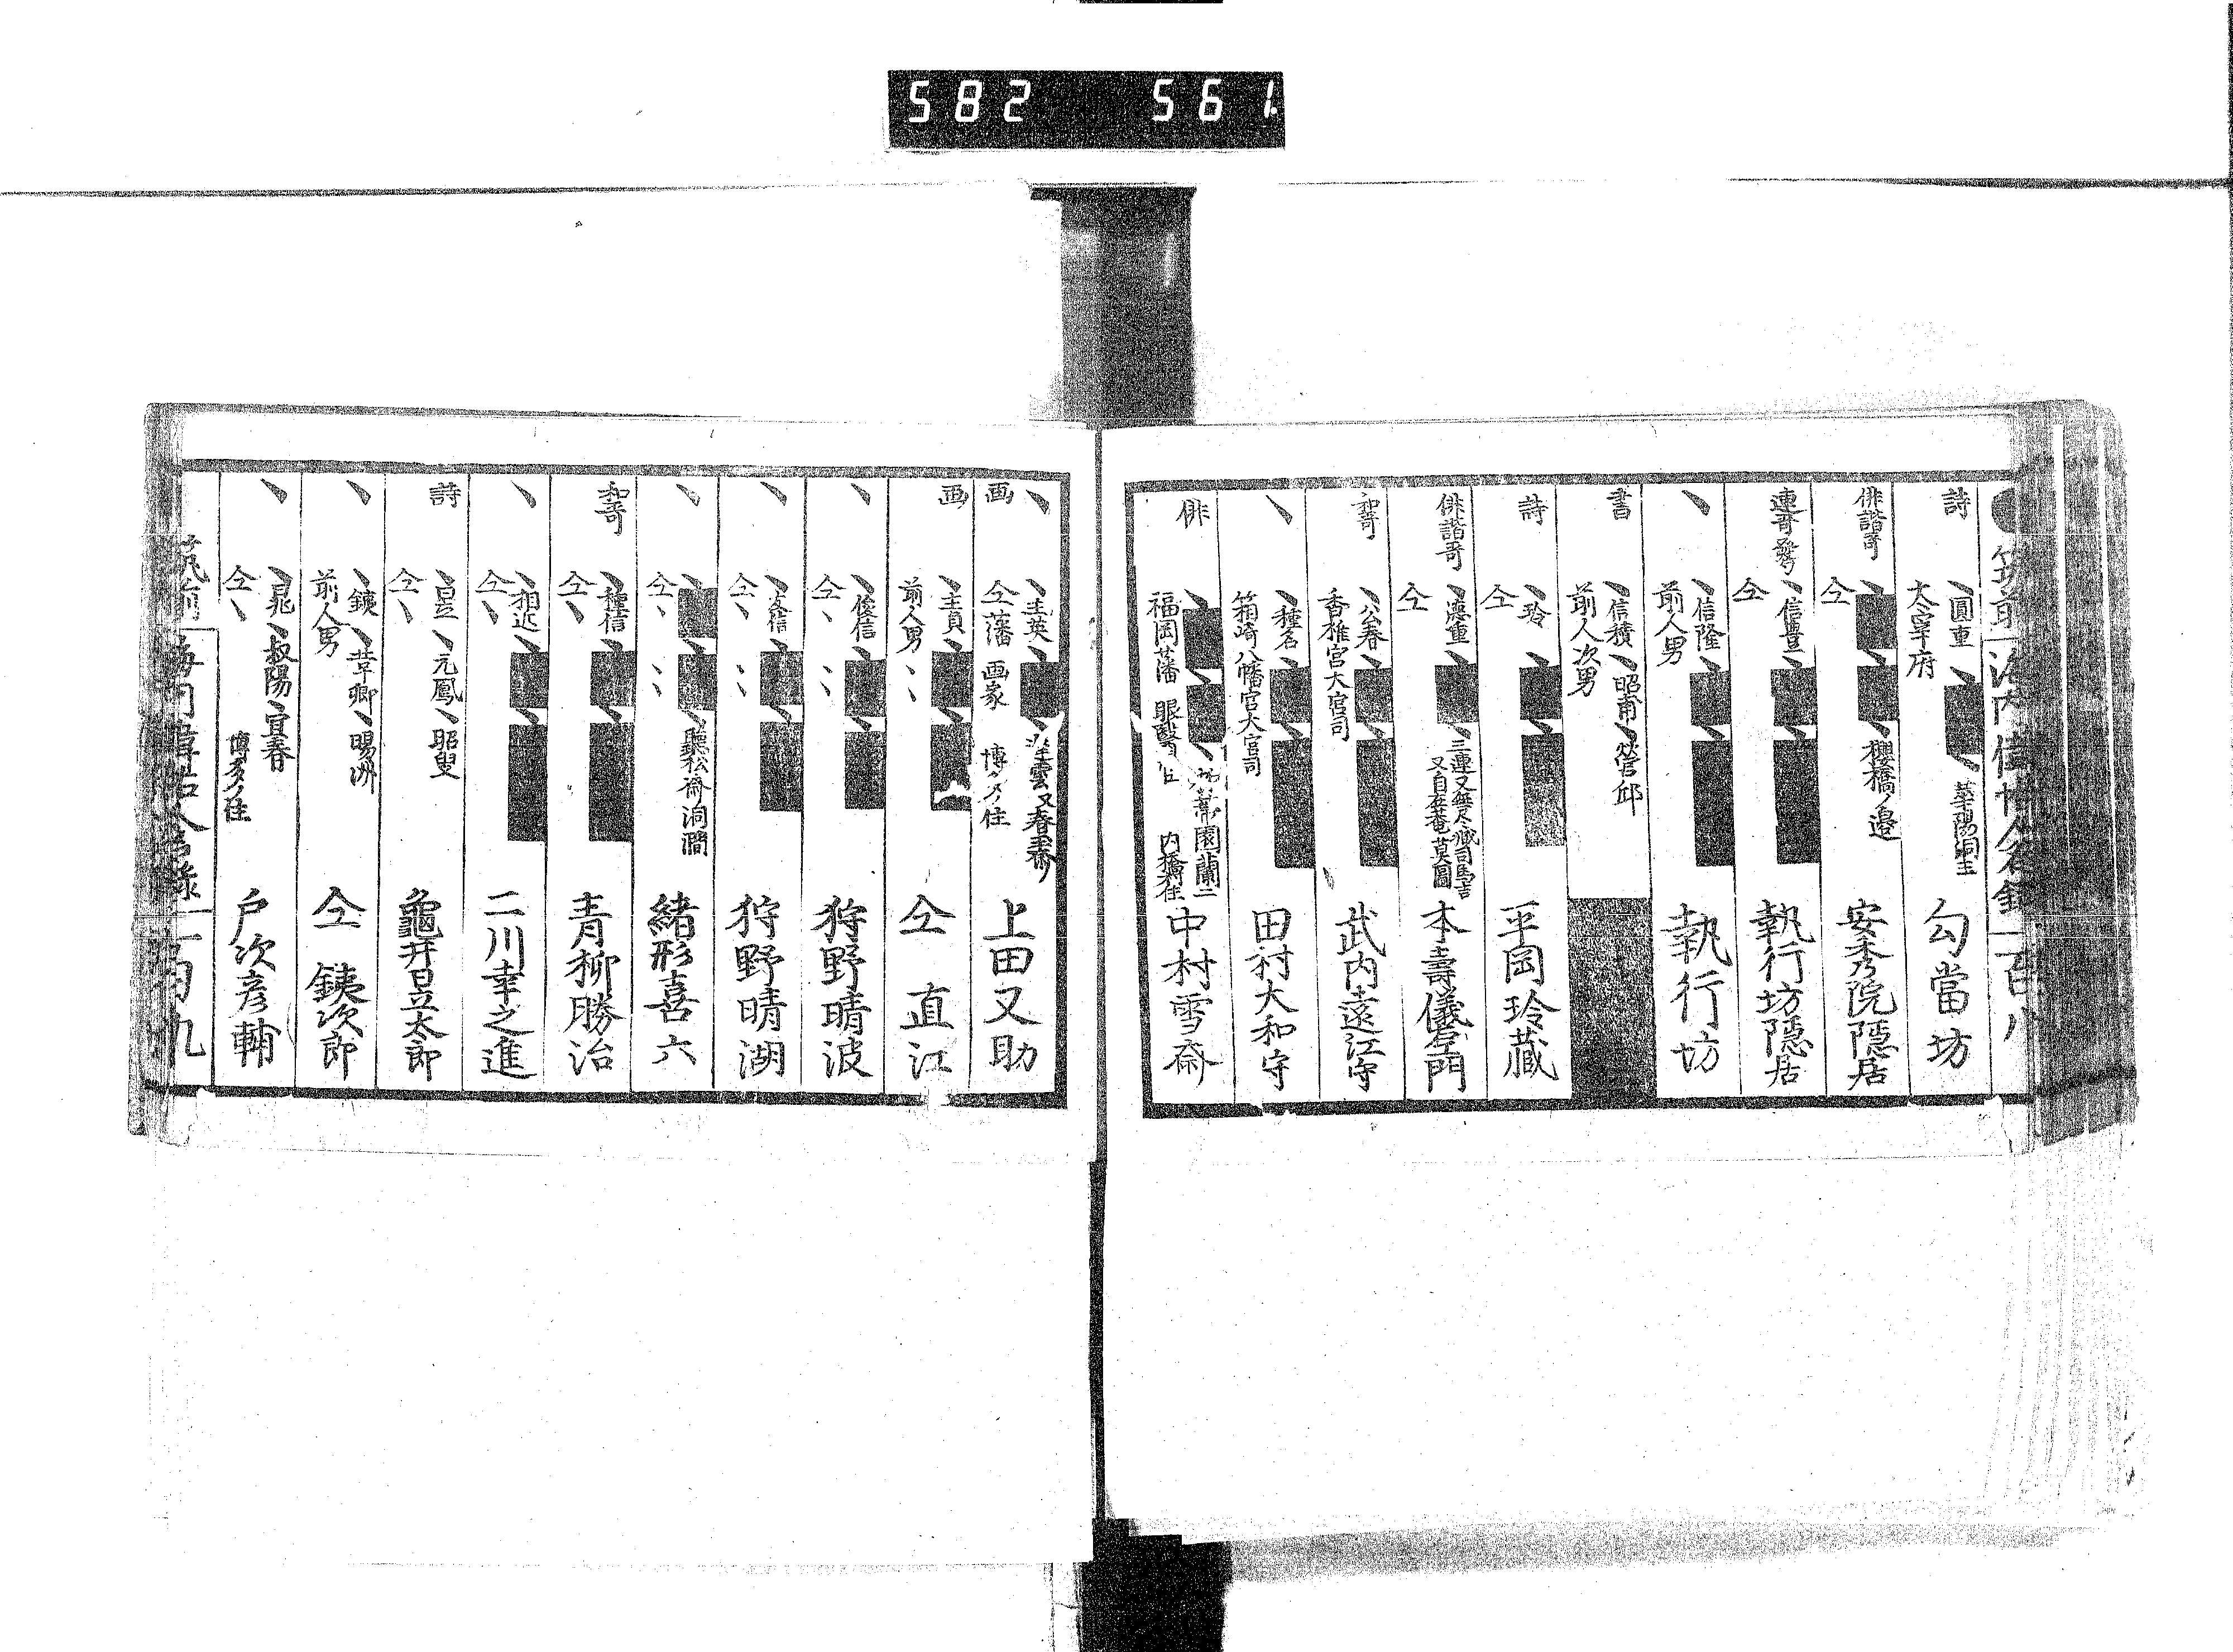 582 561
筑前 海内偉帖人名録 百八
詩 圓重 華陽洞主 勾當坊
太宰府
俳諧哥 櫻橋ノ邉 安秀院隠居
仝
連哥 信豊 執行坊隠居
仝
〵 信隆 執行坊
前人男
書 信積 昭甫 營邱
前人次男
詩 玲 平岡玲蔵
仝
俳諧哥 徳重 三連又無尽蔵司馬吉 本壽儀右門
又自在菴莫圖
仝
和哥 公春 武内遠江守
香椎宮大宮司
〵 種名 田村大和守
箱崎八幡宮大宮司
俳 園蘭二 中村雪斎
福岡藩 眼醫 内橋住
〵 主英 雲又春 上田又助
画 仝藩 画家 博多ノ住
画 主員 仝 直江
前人男〵〵
〵 俊信 狩野晴波
仝〵〵
〵 信 狩野晴湖
仝〵〵
〵 聽松斎 洞澗 緒形喜六
仝〵〵
和哥 種信 青柳勝治
仝〵
〵 相近 二川幸之進
仝〵
詩 昱 元鳳 昭叟 龜井昱太郎
仝〵
〵 銕 韋卿 暘洲 仝 銕次郎
前人男
〵 晁 叔陽 宜春 戸次彦輔
仝〵 博多ノ住
筑前 海内偉帖人名録 百九